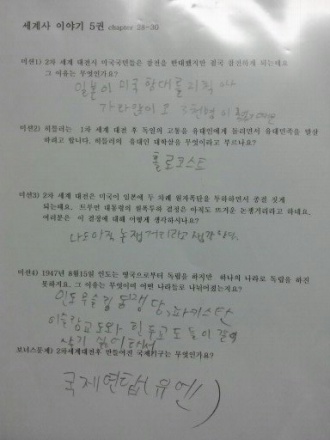 세계사 이야기 5권 chapter 28-30
미션1) 2차 세계 대전시 미국국민들은 참전을 반대했지만 결국 참전하게 되는데요
그 이유는 무엇인가요?
일본이 미국
미션2) 히틀러는 1차 세계 대전 후 독일의 고통을 유대인에게 돌리면서 유대민족을 말살
하려고 합니다. 히틀러의 유대인 대학살을 무엇이라고 부르나요?
홀로코스트
미션3) 2차 세계 대전은 미국이 일본에 두 차례 원자폭탄을 투하하면서 종결 짓게
되는데요. 트루먼 대통령의 원폭투하 결정은 아직도 뜨거운 논쟁거리라고 하네요.
여러분은 이 결정에 대해 어떻게 생각하시나요?
나도 아직 논쟁거리라 생각한다.
미션4) 1947년 8월15일 인도는 영국으로부터 독립을 하지만 하나의 나라로 독립을 하진
못하지요. 그 이유는 무엇이며 어떤 나라들로 나뉘어졌는지요?
인도 무슬림 동맹당, 파키스탄
이슬람교도와 힌두교도들이 같이
살기 싫어해서
보너스문제) 2차세계대전후 만들어진 국제기구는 무엇인가요?
국제연합(유엔)